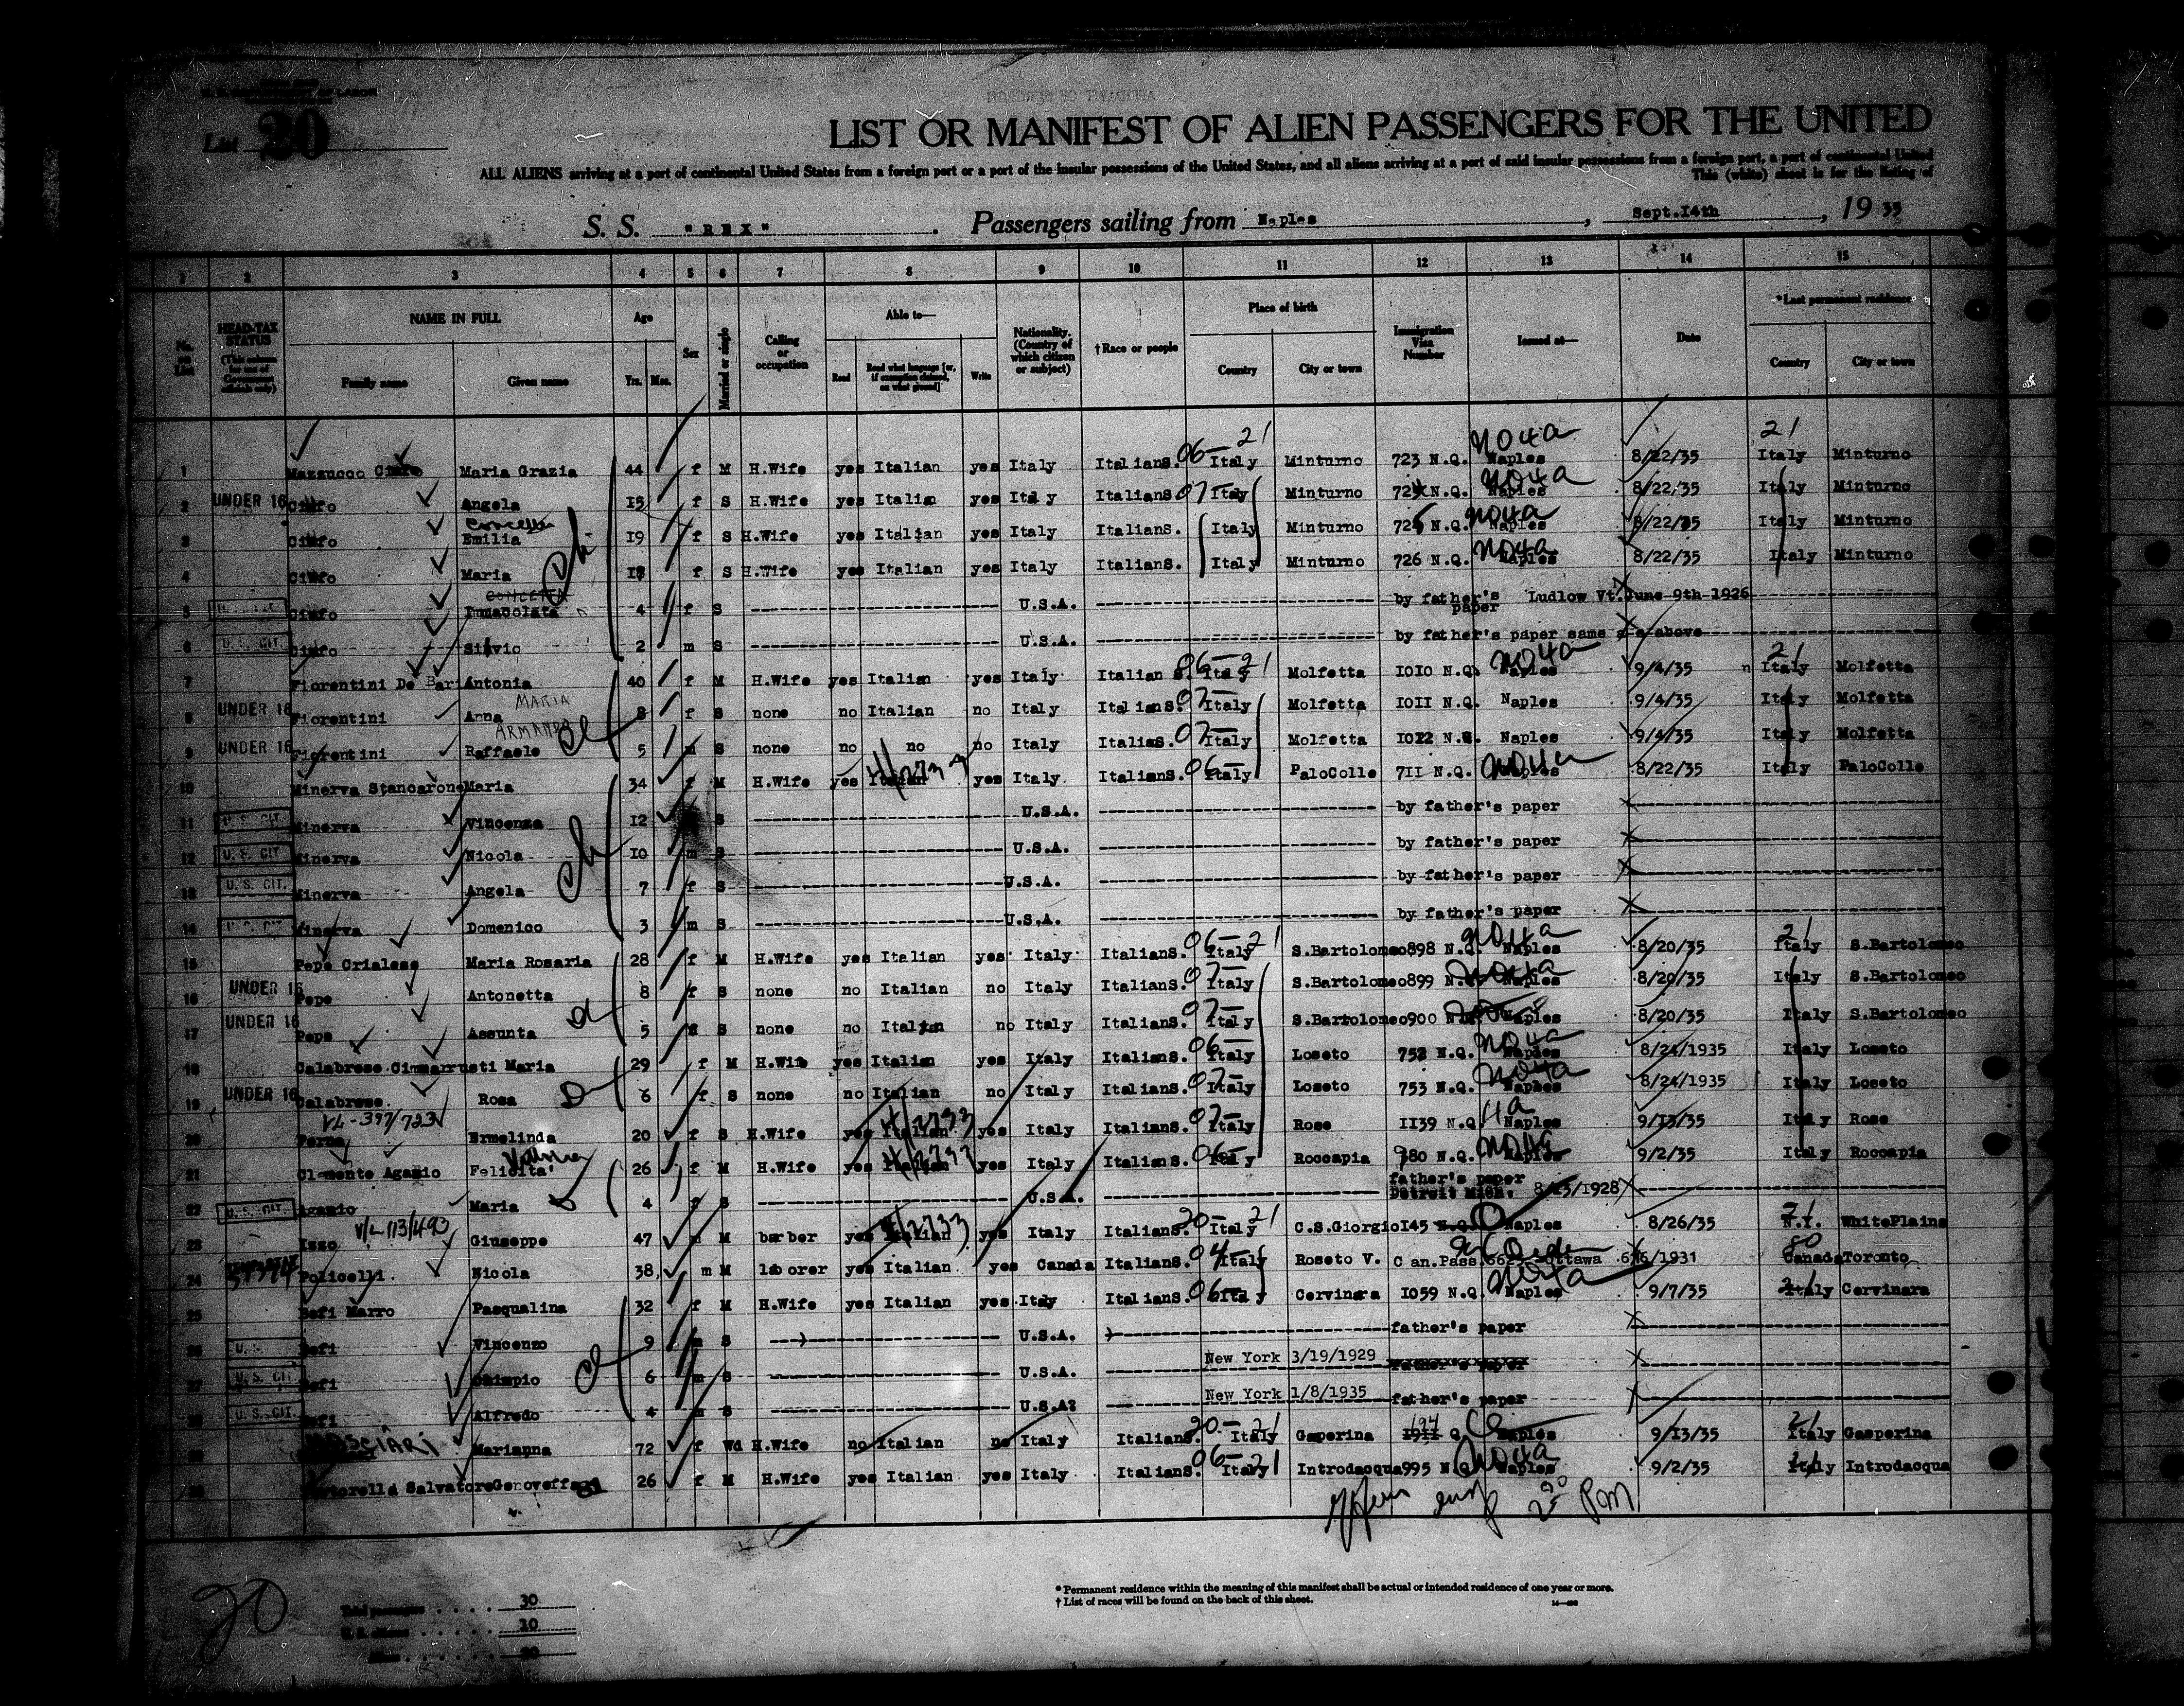 List 20
LIST OR MANIFEST OF ALIEN PASSENGERS FOR THE UNITED
ALL ALIENS arriving at a port of continental United States from a foreign port or a port of the insular possessions of the United States, and all aliens arriving at a port of said insular possessions from a foreign port, a port of continental United
This (white) sheet is for the listing of
S. S. "REX". Passengers sailing from Naples, Sept.14th, 19 35
1 2 3 4 5 6 7 8 9 10 11 12 13 14 15
No. on List HEAD-TAX STATUS (This column for use of Government officials only) NAME IN FULL Family name Given name Age Yrs. Mos. Sex Married or single Calling or occupation Able to— Read Read what language [or, if exemption claimed, on what ground] Write Nationality. (Country of which citizen or subject) †Race or people Place of birth Country City or town Immigration Visa Number Issued at— Date *Last permanent residence Country City or town
1 Mazzucco Maria Grazia 44 f M H.Wife yes Italian yes Italy ItalianS. 06- 21 Italy Minturno 723 N.Q. Naples 8/22/35 21 Italy Minturno
2 UNDER 16 Angela 15 f S H.Wife yes Italian yes Italy ItalianS. 07 Italy Minturno 724 N.Q. Naples 8/22/35 Italy Minturno
3 Emilia 19 f S H.Wife yes Italian yes Italy ItalianS. Italy Minturno 725 N.Q. Naples 8/22/35 Italy Minturno
4 Maria 18 f S H.Wife yes Italian yes Italy ItalianS. Italy Minturno 726 N.Q. Naples 8/22/35 Italy Minturno
CONCETTA
5 Immacolata 4 f S U.S.A. by father's paper Ludlow Vt. June 9th 1926
6 U. S. CIT. Silvio 2 m S U.S.A. by father's paper same as above
7 Fiorentini De Bari Antonia 40 f M H.Wife yes Italian yes Italy Italian S. 06- 21 Italy Molfetta 1010 N.Q. Naples 9/4/35 21 Italy Molfetta
MARIA
8 UNDER 16 Fiorentini Anna 8 f S none no Italian no Italy ItalianS. 07- Italy Molfetta 1011 N.Q. Naples 9/4/35 Italy Molfetta
ARMANDO
9 UNDER 16 Fiorentini Raffaele 5 m S none no no no Italy ItaliaS. 07- Italy Molfetta 1012 N.Q. Naples 9/4/35 Italy Molfetta
10 Minerva Stancarone Maria 34 f M H.Wife yes Italian yes Italy ItalianS. 06- Italy PaloColle 711 N.Q. Naples 8/22/35 Italy PaloColle
11 U. S. CIT. Minerva Vincenza 12 S U.S.A. by father's paper
12 U. S. CIT. Minerva Nicola 10 m S U.S.A. by father's paper
13 U. S. CIT. Minerva Angela 7 f S U.S.A. by father's paper
14 U. S. CIT. Minerva Domenico 3 m S U.S.A. by father's paper
15 Pepe Crialese Maria Rosaria 28 f M H.Wife yes Italian yes Italy ItalianS. 06- 21 Italy S.Bartolomeo 898 N.Q. Naples 8/20/35 21 Italy S.Bartolomeo
16 UNDER 16 Pepe Antonetta 8 f S none no Italian no Italy ItalianS. 07- Italy S.Bartolomeo 899 N.Q. Naples 8/20/35 Italy S.Bartolomeo
17 UNDER 16 Pepe Assunta 5 S none no Italian no Italy ItalianS. 07- Italy S.Bartolomeo 900 Naples 8/20/35 Italy S.Bartolomeo
18 Calabrese Cimmarrusti Maria 29 f M H.Wife yes Italian yes Italy ItalianS. 06- Italy Loseto 752 N.Q. Naples 8/24/1935 Italy Loseto
19 UNDER 16 Calabrese Rosa 6 f S none no Italian no Italy ItalianS. 07- Italy Loseto 753 N.Q. Naples 8/24/1935 Italy Loseto
VL-397/723
20 Perna Ermelinda 20 f S H.Wife yes Italian yes Italy ItalianS. 07- Italy Rose 1139 N.Q. Naples 9/13/35 Italy Rose
21 Clemente Agamio Felicita' 26 f M H.Wife yes Italian yes Italy ItalianS. 06- Italy Roccapia 980 N.Q. Naples 9/2/35 Italy Roccapia
22 U. S. CIT. Agamio Maria 4 f S U.S.A. father's paper Detroit Mich. 8/23/1928
V/L 113/493
23 Izzo Giuseppe 47 M barber yes Italian yes Italy ItalianS. 20- 21 Italy C.S.Giorgio 145 N.Q. Naples 8/26/35 21 N.Y. WhitePlains
24 Policelli Nicola 38 m M laborer yes Italian yes Canada ItalianS. 04 Italy Roseto V. Can.Pass. Ottawa Canada Toronto
25 Sefi Marro Pasqualina 32 f M H.Wife yes Italian yes Italy ItalianS. 06 Italy Cervinara 1059 N.Q. Naples 9/7/35 Italy Cervinara
26 U.S. Sefi Vincenzo 9 m S U.S.A. father's paper
27 U. S. CIT. Sefi Olimpio 6 m S U.S.A. New York 3/19/1929 father's paper
28 U. S. CIT. Sefi Alfredo 4 m S U.S.A? New York 1/8/1935 father's paper
29 MOSCIARI Marianna 72 f Wd H.Wife no Italian no Italy ItalianS. 20- 21 Italy Gasperina 194 Q Naples 9/13/35 21 Italy Gasperina
30 Salvatore Genoveffa 26 f M H.Wife yes Italian yes Italy ItalianS. 06- 21 Italy Introdacqua 995 N.Q. Naples 9/2/35 Italy Introdacqua
20
Total passengers 30
U. S. citizens 10
Aliens 20
* Permanent residence within the meaning of this manifest shall be actual or intended residence of one year or more.
† List of races will be found on the back of this sheet.